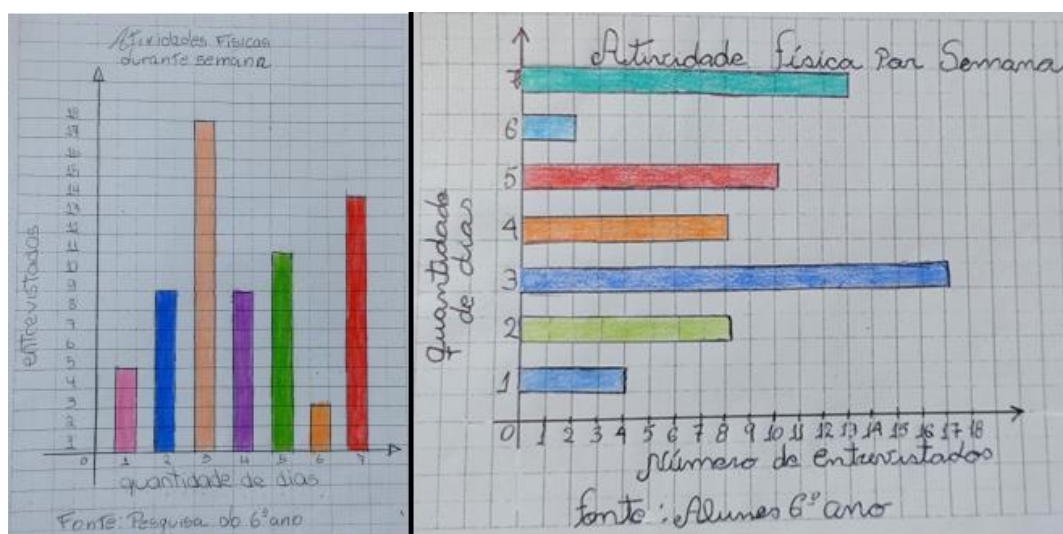 Atividades Físicas
durante semana
entrevistados
18
17
16
15
14
13
12
11
10
9
8
7
6
5
4
3
2
1
0 1 2 3 4 5 6 7
quantidade de dias
Fonte: Pesquisa do 6º ano
Atividade física Por Semana
quantidade
de dias
7
6
5
4
3
2
1
0 1 2 3 4 5 6 7 8 9 10 11 12 13 14 15 16 17 18
Número de entrevistados
fonte: Alunes 6º ano